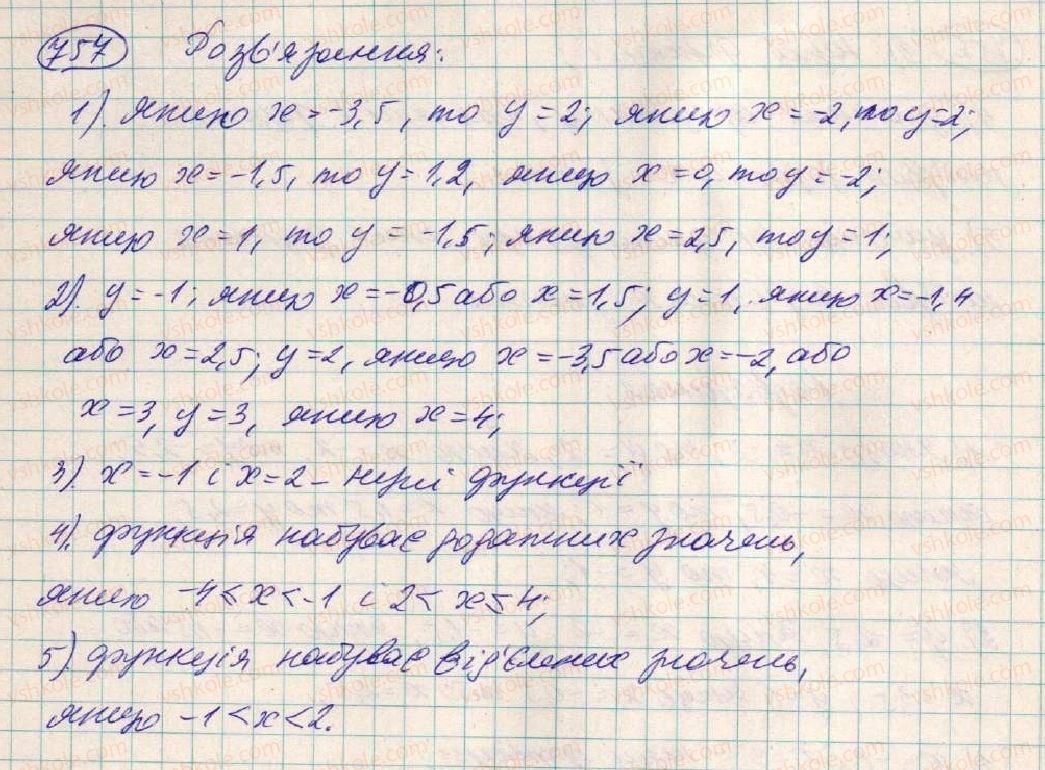 757 Розв'язання:
1). якщо x = -3,5, то y = 2; якщо x = -2, то y = 2;
якщо x = -1,5, то y = 1,2, якщо x = 0, то y = -2;
якщо x = 1, то y = -1,5; якщо x = 2,5, то y = 1;
2). y = -1; якщо x = -0,5 або x = 1,5; y = 1, якщо x = -1,4
або x = 2,5; y = 2, якщо x = -3,5 або x = -2, або
x = 3, y = 3, якщо x = 4;
3). x = -1 і x = 2 - нулі функції
4). функція набуває додатних значень,
якщо -4 < x < -1 і 2 < x ≤ 4;
5) функція набуває від'ємних значень,
якщо -1 < x < 2.